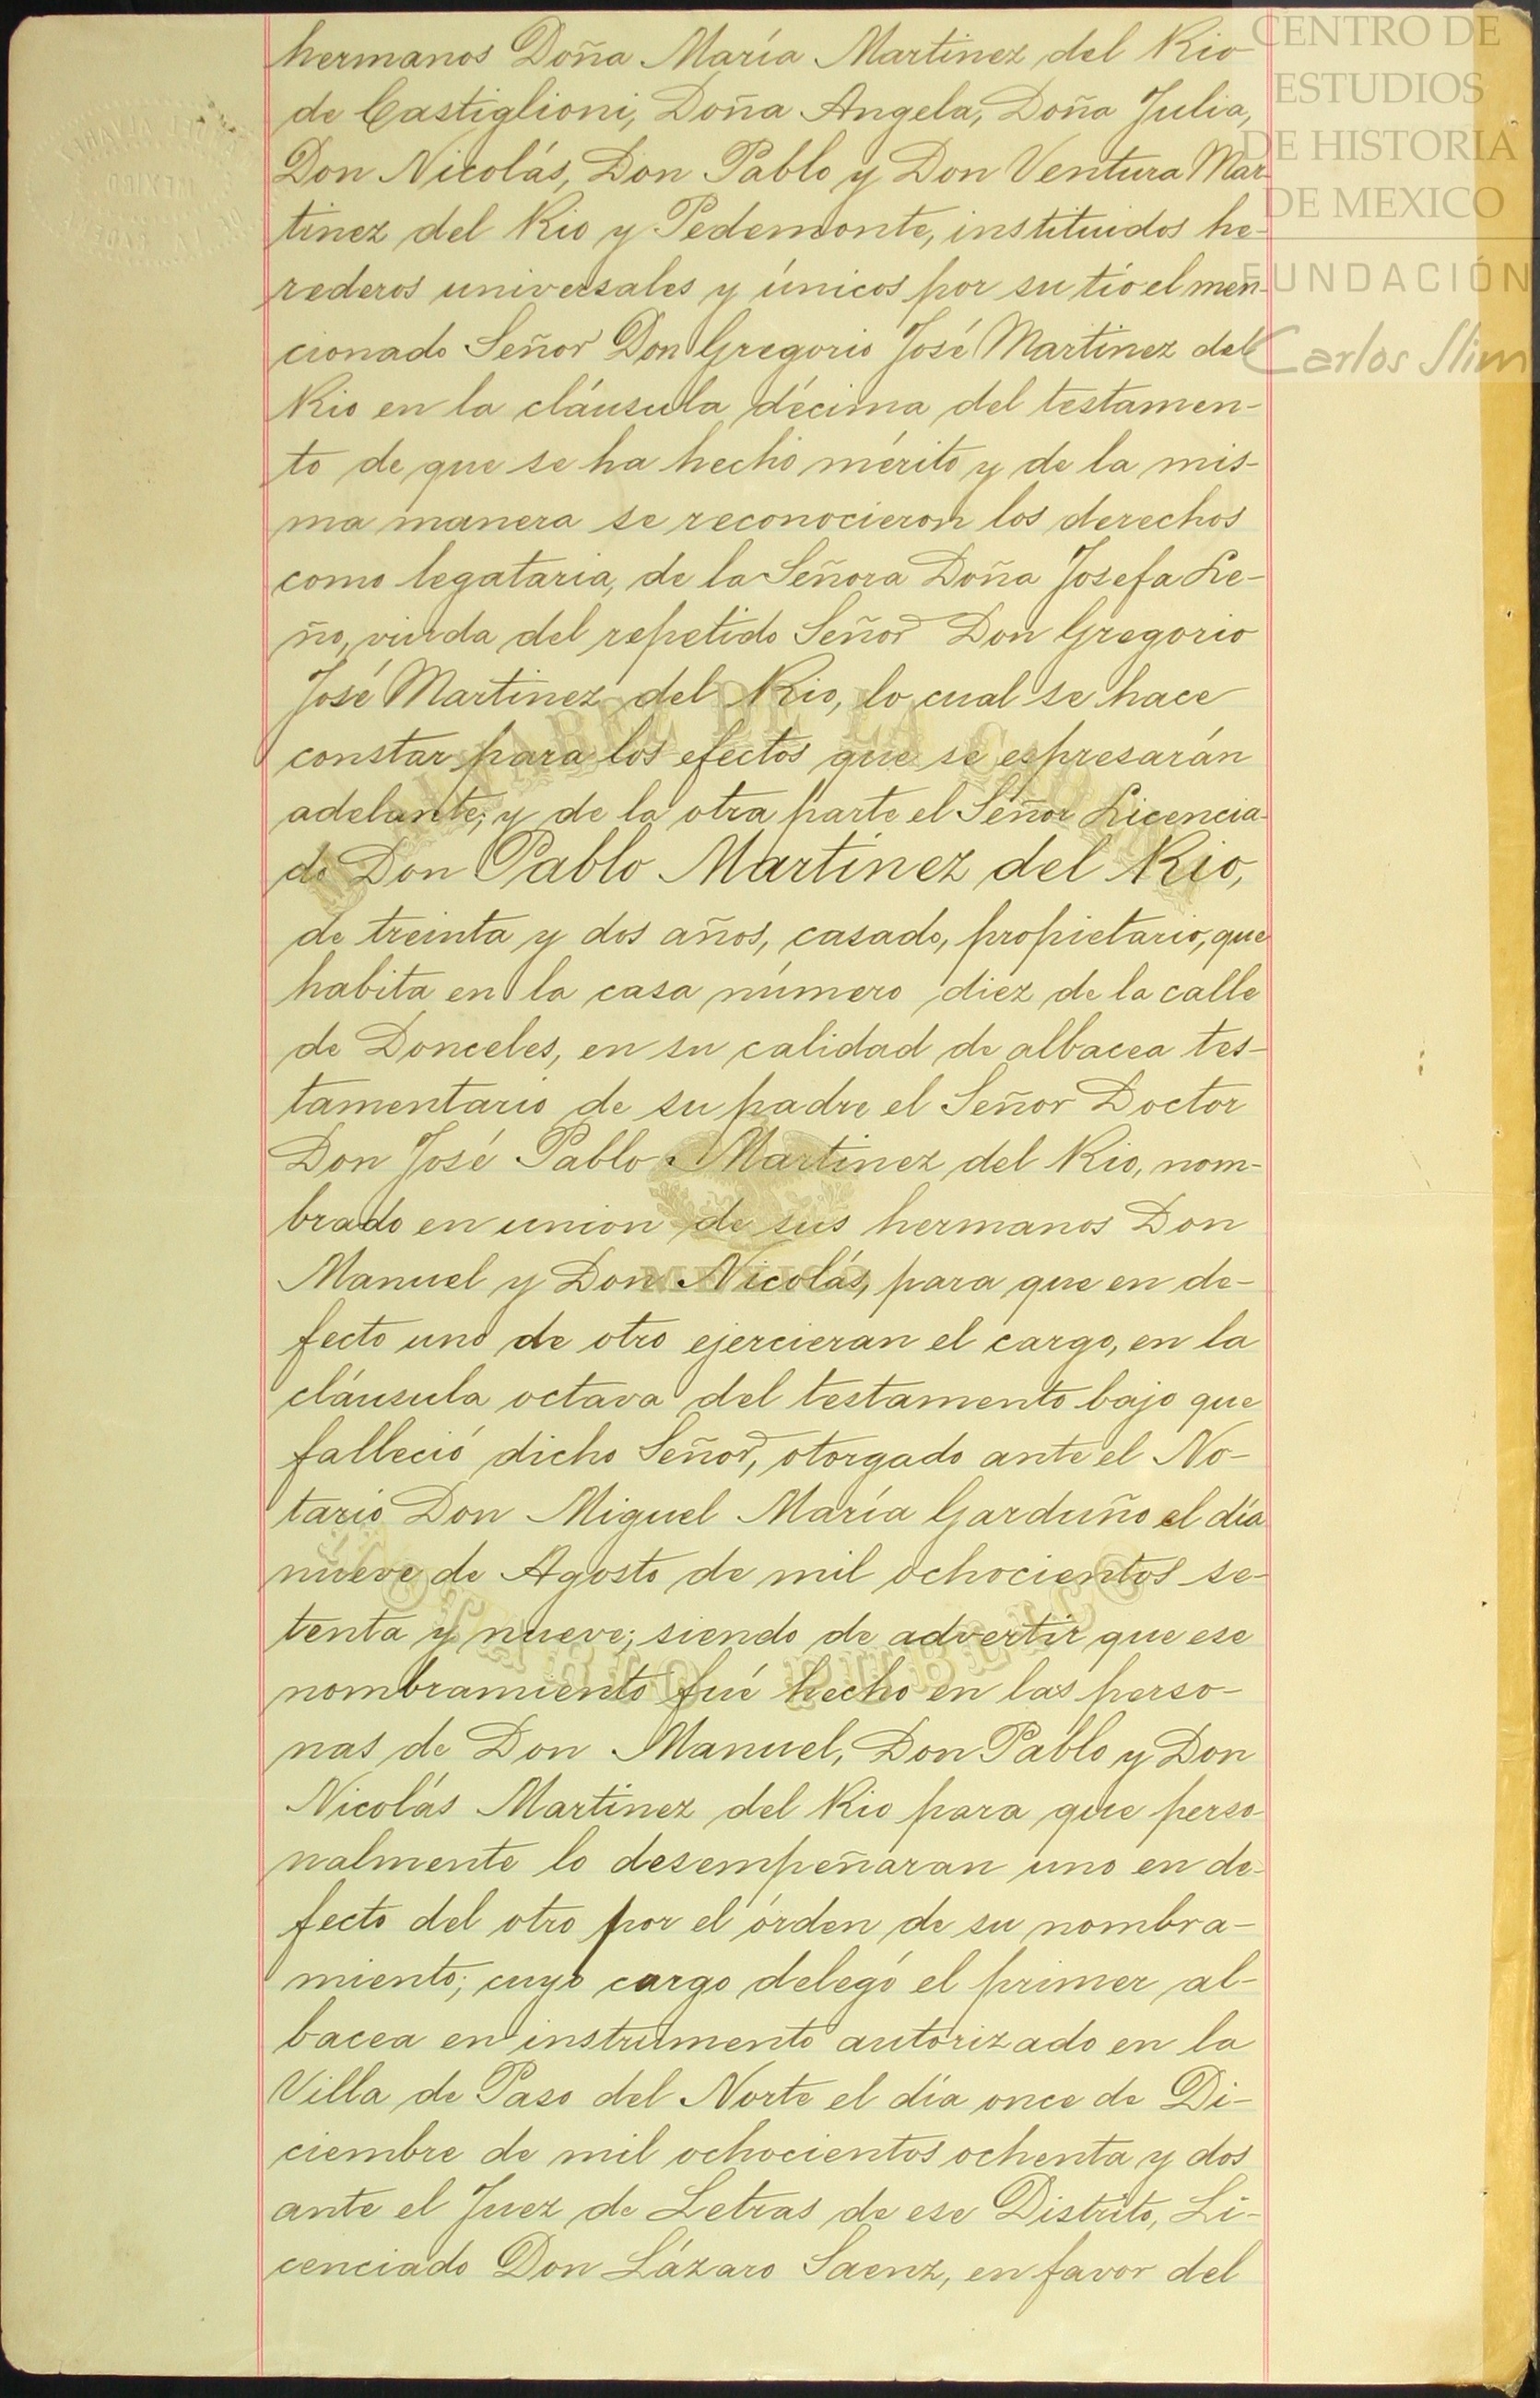 hermanos Doña María Martinez del Rio
de Castiglioni, Doña Angela, Doña Julia,
Don Nicolás, Don Pablo y Don Ventura Mar-
tinez del Rio y Pedemonte, instituidos he-
rederos universales y únicos por su tío el men-
cionado Señor Don Gregorio José Martinez del
Rio en la cláusula décima del testamen-
to de que se ha hecho mérito y de la mis-
ma manera se reconocieron los derechos
como legataria, de la Señora Doña Josefa Le-
ño, viuda del repetido Señor Don Gregorio
José Martinez del Rio, lo cual se hace
constar para los efectos que se espresarán
adelante; y de la otra parte el Señor Licencia-
do Don Pablo Martinez del Rio,
de treinta y dos años, casado, propietario, que
habita en la casa número diez de la calle
de Donceles, en su calidad de albacea tes-
tamentario de su padre el Señor Doctor
Don José Pablo Martinez del Rio, nom-
brado en union de sus hermanos Don
Manuel y Don Nicolás, para que en de-
fecto uno de otro ejercieran el cargo, en la
cláusula octava del testamento bajo que
falleció dicho Señor, otorgado ante el No-
tario Don Miguel María Garduño el día
nueve de Agosto de mil ochocientos se-
tenta y nueve; siendo de advertir que ese
nombramiento fué hecho en las perso-
nas de Don Manuel, Don Pablo y Don
Nicolás Martinez del Rio para que perso-
nalmente lo desempeñaran uno en de-
fecto del otro por el órden de su nombra-
miento; cuyo cargo delegó el primer al-
bacea en instrumento autorizado en la
Villa de Paso del Norte el día once de Di-
ciembre de mil ochocientos ochenta y dos
ante el Juez de Letras de ese Distrito, Li-
cenciado Don Lázaro Saenz, en favor del
CENTRO DE
ESTUDIOS
DE HISTORIA
DE MEXICO
FUNDACIÓN
Carlos Slim